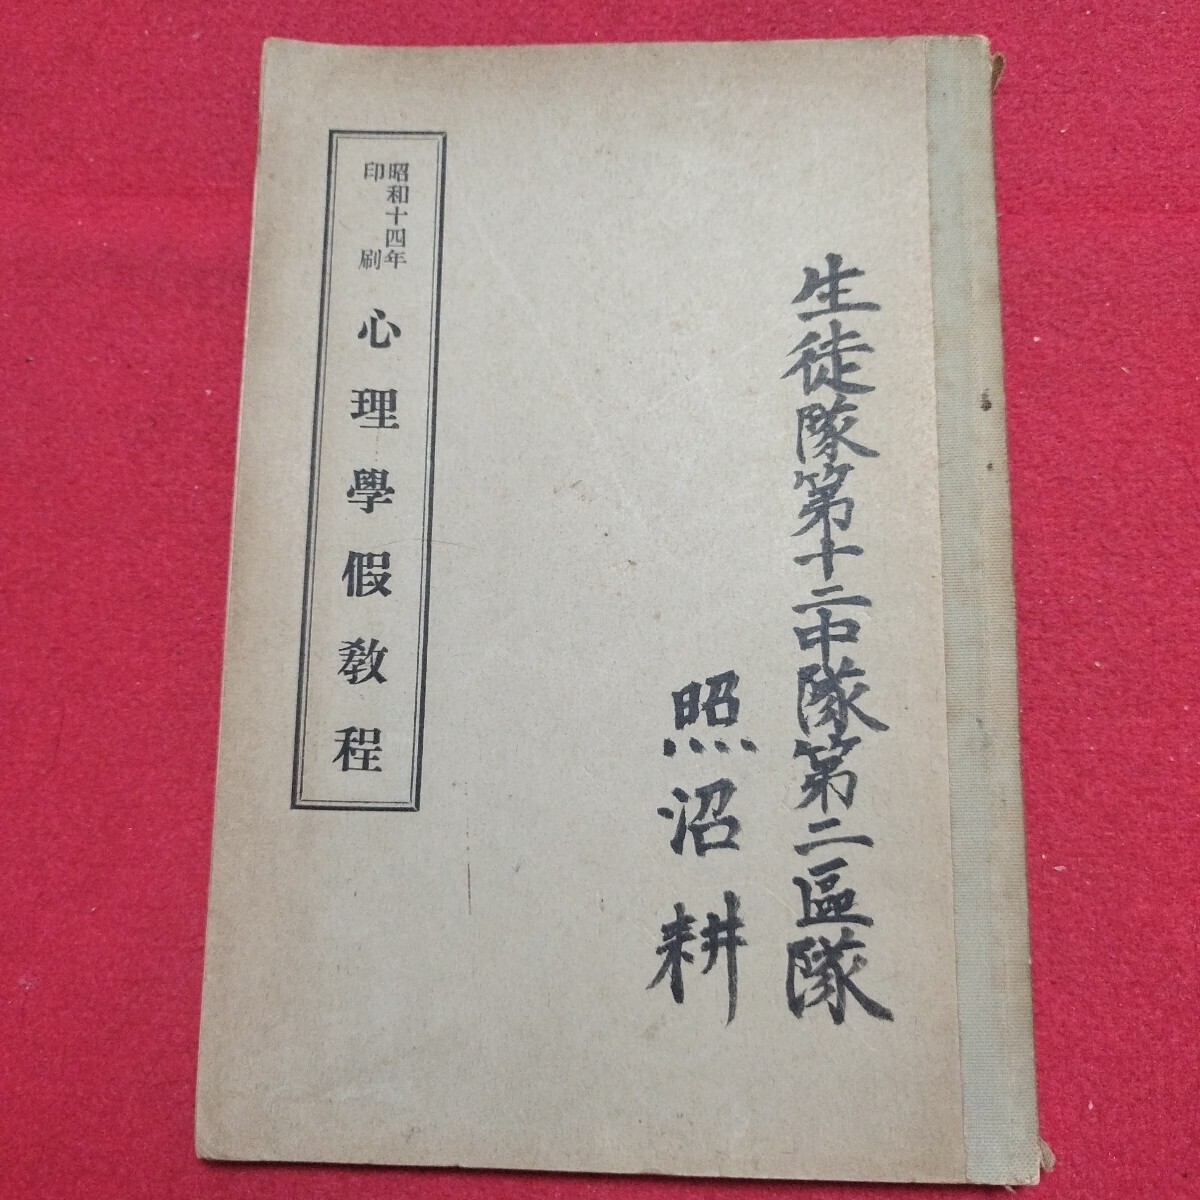 生徒隊第十二中隊第二區隊
照沼耕
昭和十四年
印刷
心理學假教程